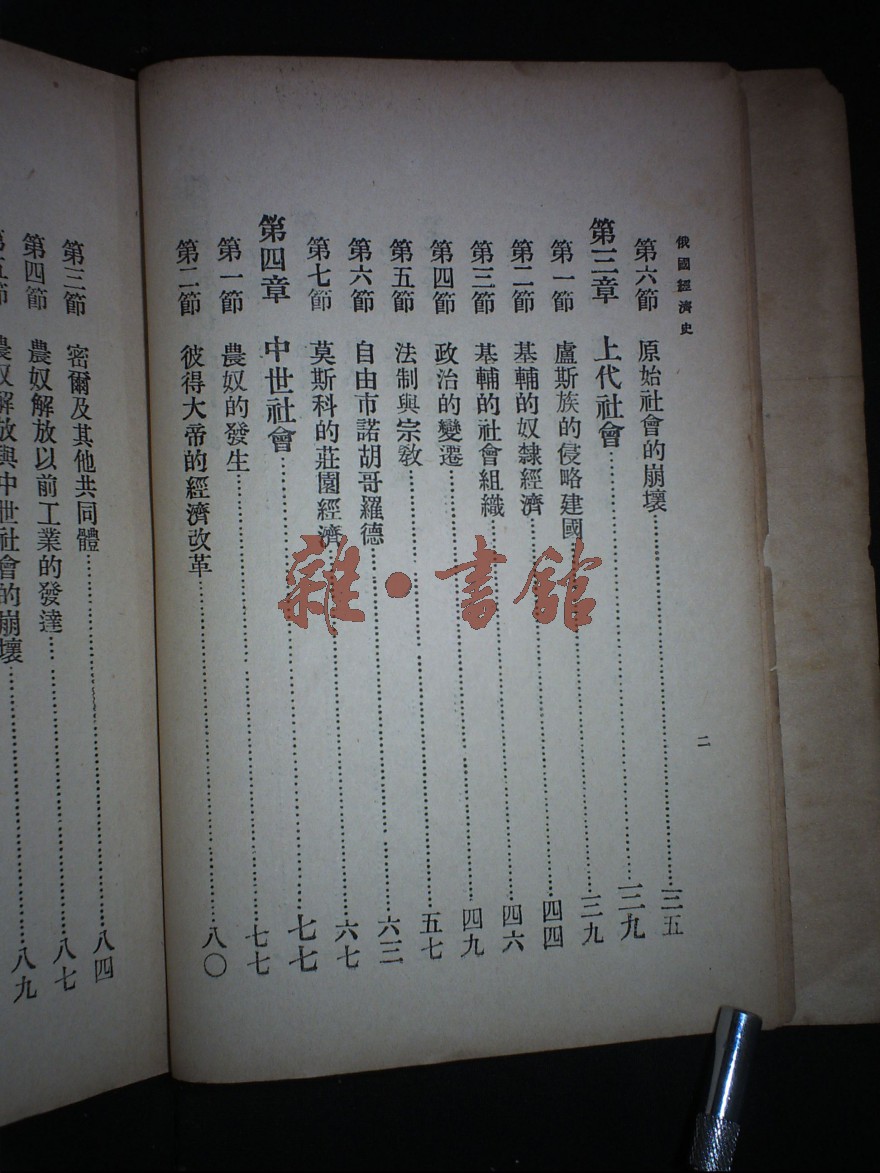 俄國經濟史
二
第六節 原始社會的崩壞……三五
第三章 上代社會……三九
第一節 盧斯族的侵略建國……三九
第二節 基輔的奴隸經濟……四四
第三節 基輔的社會組織……四六
第四節 政治的變遷……四九
第五節 法制與宗教……五七
第六節 自由市諾胡哥羅德……六三
第七節 莫斯科的莊園經濟……六七
第四章 中世社會……七七
第一節 農奴的發生……七七
第二節 彼得大帝的經濟改革……八〇
第三節 密爾及其他共同體……八四
第四節 農奴解放以前工業的發達……八七
第五節 農奴解放與中世社會的崩壞……八九
雜·書館